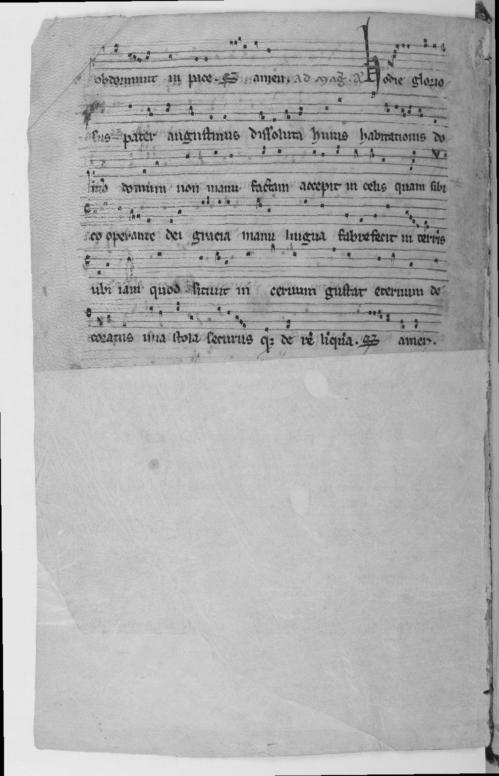 obdormiuit in pace. amen. ad mag. Hodie glorio
sus pater augustinus dissoluta huius habitationis do
mo domum non manu factam accepit in celis quam sibi
cooperante dei gracia manu lingua fabrefecit in terris
ubi iam quod sitiuit in eternum gustat eternum de
coratus una stola securus q; de reliqua. amen.